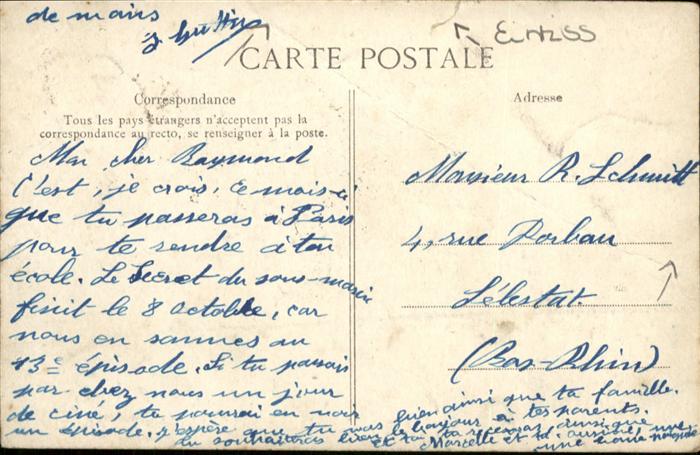 de mains
EINRISS
CARTE POSTALE
Correspondance
Tous les pays étrangers n'acceptent pas la
correspondance au recto, se renseigner à la poste.
Mon cher Raymond
C'est, je crois, ce mois-ci
que tu passeras à Paris
pour te rendre à ton
école. Le Secret du sous-marin
finit le 8 octobre, car
nous en sommes au
13e épisode. Si tu passais
par chez nous un jour
de ciné, tu pourrai en voir
un épisode. J'espère que tu vas bien ainsi que ta famille.
tu souhaiteras bien le bonjour à tes parents.
et toi, tu recevras, ainsi que
Marcelle et ta une
une bonne poignée
Adresse
Monsieur R. Schmitt
4, rue Vorbau
Sélestat.
(Bas-Rhin)